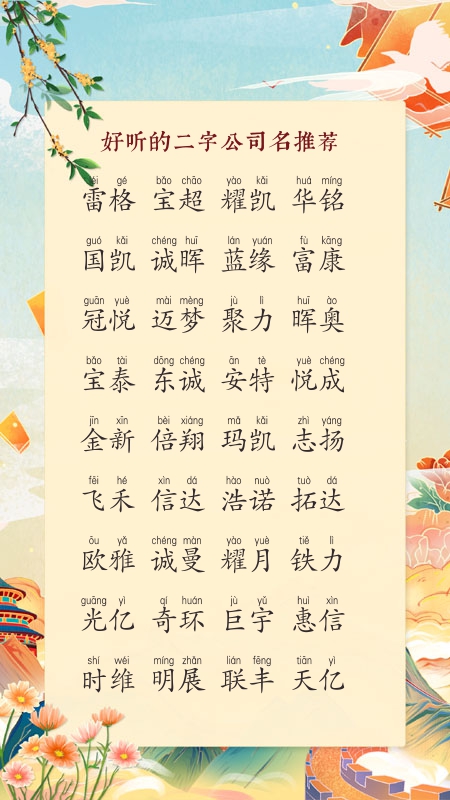 好听的二字公司名推荐
léi gé bǎo chāo yào kǎi huá míng
雷格 宝超 耀凯 华铭
guó kǎi chéng huī lán yuán fù kāng
国凯 诚晖 蓝缘 富康
guān yuè mài mèng jù lì huī ào
冠悦 迈梦 聚力 晖奥
bǎo tài dōng chéng ān tè yuè chéng
宝泰 东诚 安特 悦成
jīn xīn bèi xiáng mǎ kǎi zhì yáng
金新 倍翔 玛凯 志扬
fēi hé xìn dá hào nuò tuò dá
飞禾 信达 浩诺 拓达
ōu yǎ chéng màn yào yuè tiě lì
欧雅 诚曼 耀月 铁力
guāng yì qí huán jù yǔ huì xìn
光亿 奇环 巨宇 惠信
shí wéi míng zhǎn lián fēng tiān yì
时维 明展 联丰 天亿